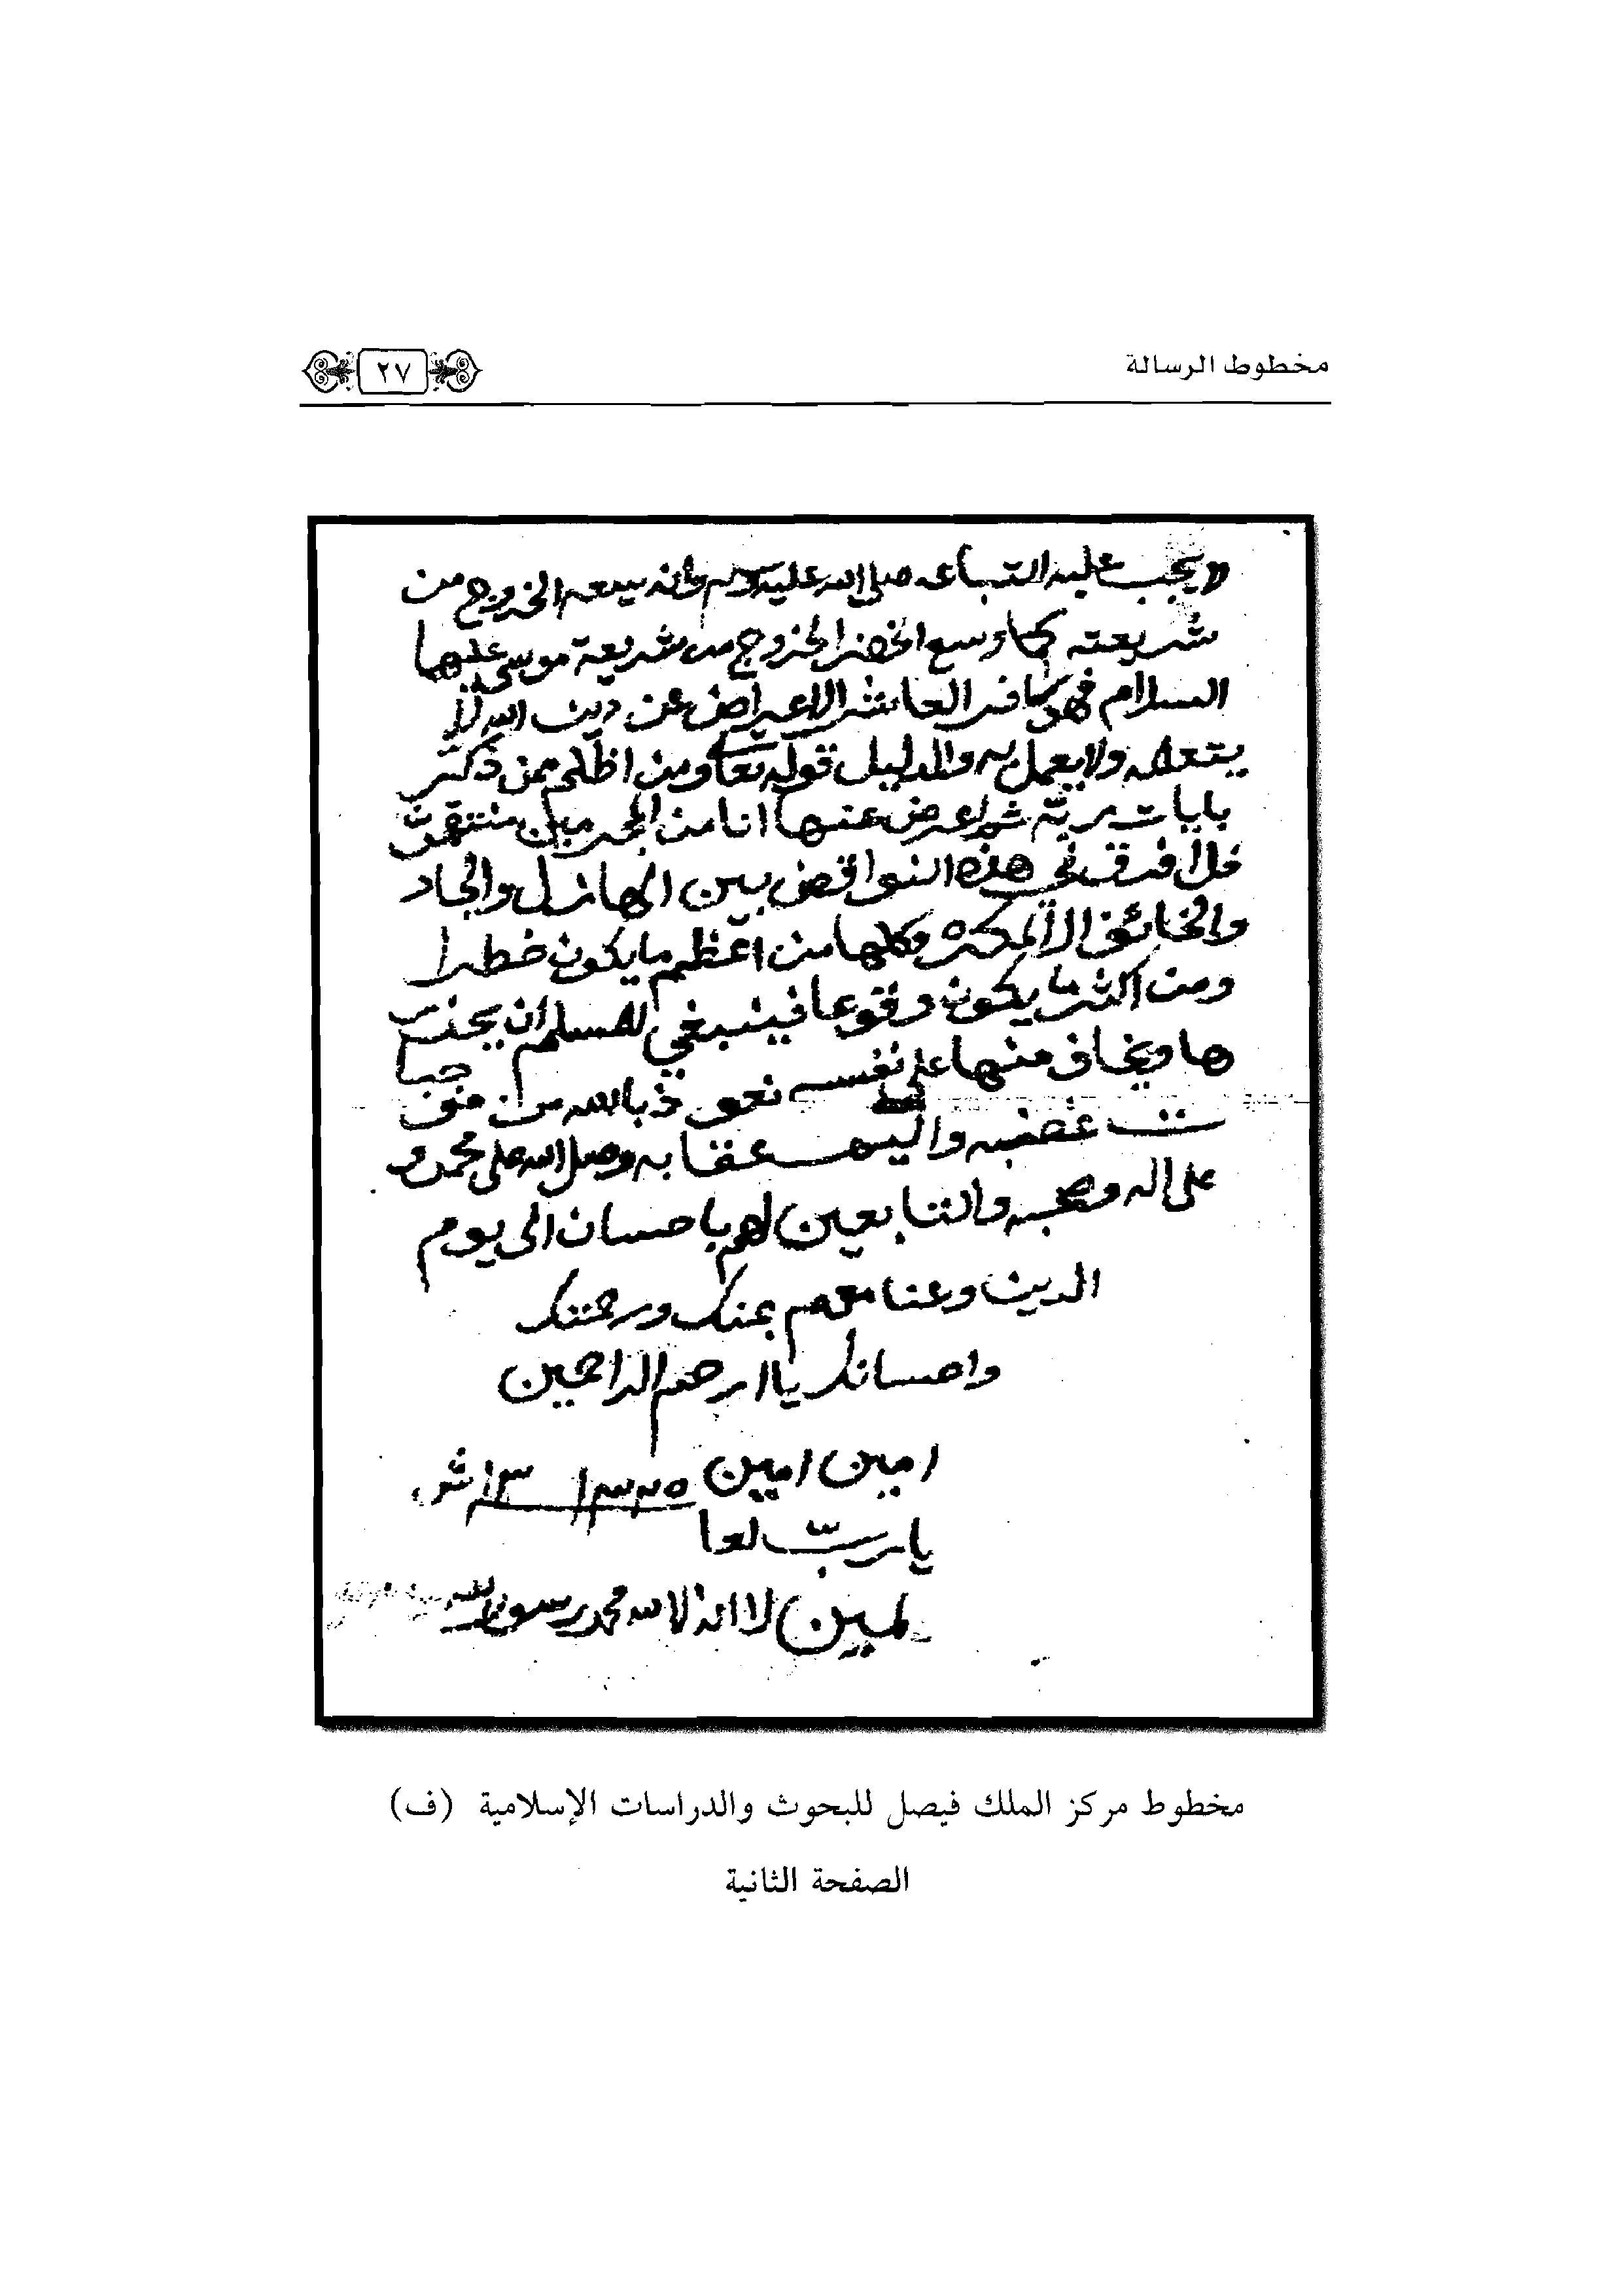 مخطوط الرسالة
٢٧
لا يجب عليه اتباعه صلى الله عليه وسلم وانه يسعه الخروج من
شريعته كما وسع الخضر الخروج من شريعة موسى عليهما
السلام فهو كافر العاشر الاعراض عن دين الله لا
يتعلمه ولا يعمل به والدليل قوله تعا ومن اظلم ممن ذكر
بايات ربه ثم اعرض عنها انا من المجرمين منتقمون
فلا فرق في هذه النواقض بين الهازل والجاد
والخائف الا المكره وكلها من اعظم ما يكون خطرا
ومن اكثر ما يكون وقوعا فينبغي للمسلم ان يجتنب
ها ويخاف منها على نفسه نعوذ بالله من موجبا
ت غضبه واليم عقابه وصلى الله على محمد و
على اله وصحبه والتابعين لهم باحسان الى يوم
الدين وعنا معهم بمنك ورحمتك
واحسانك يا ارحم الراحمين
امين امين
يا رب لعا
لمين لا اله الا الله محمد رسول الله
مخطوط مركز الملك فيصل للبحوث والدراسات الإسلامية (ف)
الصفحة الثانية